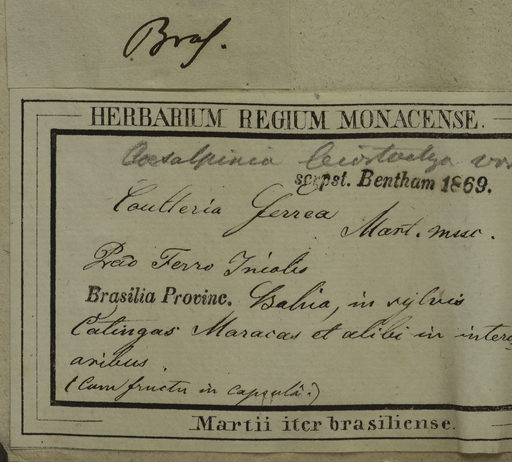 Bras.
HERBARIUM REGIUM MONACENSE.
Caesalpinia leiostachya
scrpst. Bentham 1869.
Coulteria ferrea
Mart. msc.
Páo Ferro Incolis
Brasilia Provinc. Bahia, in sylvis
Catingas Maracas et alibi in inter
aribus
(Cum fructu in capsula.)
Martii iter brasiliense.